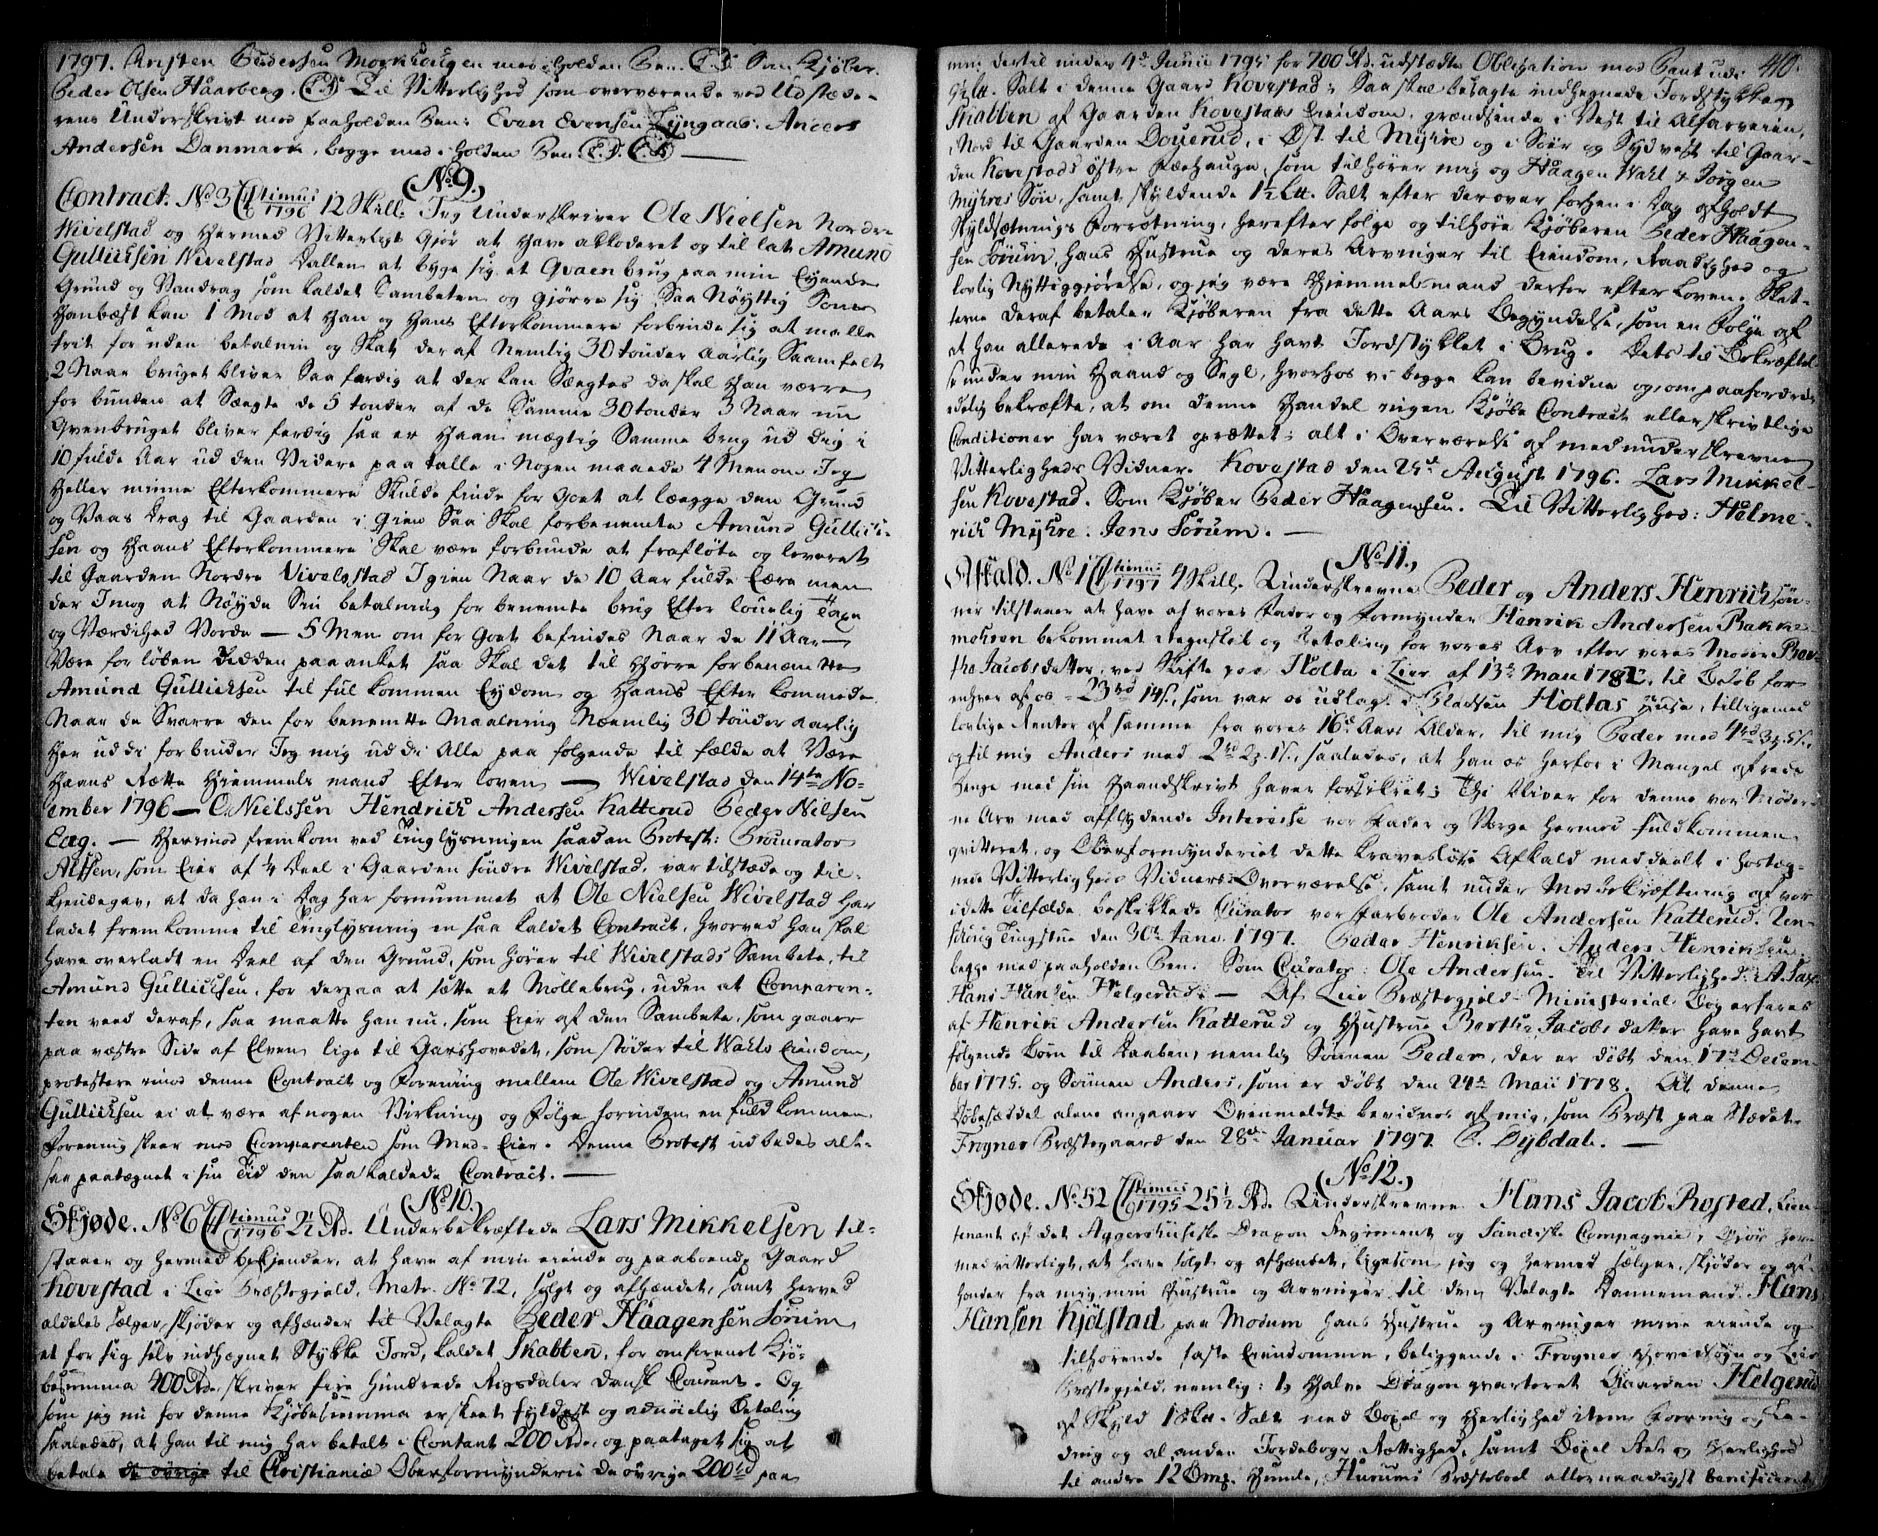 1797. Christen Pedersen Morkhaugen med i holden Pen. C.P. Som Kjøber.
Peder Olsen Haarberg. Til Vitterlighed som overværende ved Udstæde-
rens Underskrivt med paaholden Pen: Even Evensen Lyngaas. Anders
Andersen Danmark, begge med i holden Pen
(No 9.)
Contract. No 3 C Stimus 1796 12 Skill. Jeg Underskriver Ole Nielsen Nordre
Wivelstad og Hermed Vitterligt Gjør at Have akkoderet og til lat Amund
Gullichsen Wivelstad Dallen at byge sig et Qvaen brug paa min Eyende
Grund og Vandrag som kaldet Sambeten og gjørre sig Saa Nøyttig Som
Hanbæst kan 1 Mod at Han og Hans Efterkommere forbinde sig at malle
frit for uden betalning og Skat deraf Nemlig 30 tønder Aarlig Saamfelt
2 Naar bruget bliver Saa færdig at der kan Sægtes da skal Han værre
for bunden at Sægte de 5 tønder af de Samme 30 tønder 3 Naar nu
Qvenbruget bliver ferdig saa er Haan mægtig Samme brug ud Deig i
10 fulde Aar ud den Videre paa talle i Nogen maaede 4 Men om Jeg
Heller minne Efterkommere Skulde finde for Goet at lægge den Grund
og Vaas drag til Gaarden i gien Saa Skal forbenemte Amund Gullick-
sen og Haans Efterkommere Skal være forbunde at frafløte og leveret
til Gaarden Nordre Vivelsstad Igien Naar de 10 Aar fulde Ære men
der Imog at Nøyde Sin betalning for benemte brug Efter lovelig Taxe
og Værdihed Vorde — 5 Men om for Goet befindes Naar de 11 Aar
Være for løben Dedden paa anket saa Skal det til Hørre forbenæmtte
Amund Gullicksen til ful kommen Eydom og Haans Efter kommede
Naar de Svarre den for benemtte Maalning Næmlig 30 tønder aarlig
Her ud di forbinder Jeg mig ud di Alle paa følgende til fælde at Være
Haans Rætte Hjemmels mand Efter loven — Wivelstad den 14te No-
ember 1796 — O. Nielssen Hendrich Andersen Katterud Peder Nilsen
Eeg. — Herimod fremkom ved Tinglysningen saadan Protest: Procurator
Alssen, som Eier af ¼ Deel i Gaarden søndre Wivelstad, var tilstæde og til-
kiendegav, at da han i Dag har fornummet at Ole Nielsen Wivelstad har
ladet fremkomme til Tinglysning en saa kaldet Contract, hvorved han skal
have overladt en Deel af den Grund, som hører til Wivelstads Sambete, til
Amund Gullicksen, for derpaa at sætte et Møllebrug, uden at Comparen-
ten veed deraf, saa maatte han nu, som Eier af den Sambete, som gaaer
paa vestre Side af Elven lige til Garshovedet, som støder til Wahls Eiendom,
protestere imod denne Contract og Forening mellem Ole Wivelstad og Amund
Gullicksen ei at være af nogen Virkning og Følge forinden en fuldkommen
Forening skeer med Comparenten som Med-Eier. Denne Protest udbedes alt-
saa paategnet i sin Tid den saa kaldede Contract. —
(No 10.)
Skjøde. No 6 C Stimus 1796 2½ Rd. Underbekræftede Lars Mikkelsen til-
staaer og hermed bekjender, at have af min eiende og paaboende Gaard
Kovestad i Lier Præstegjeld, Matr. No 72, solgt og afhændet, samt herved
aldeles sælger, skjøder og afhænder til Velagte Peder Haagensen Sørum
et for sig selv indhegnet Stykke Jord, kaldet Skatten, for omforenet Kjø-
besumma 400 Rd., skriver fire Hundrede Rigsdaler Dansk Courant. Og
som jeg nu for denne Kjøbesumma er skeet fyldest og adnøielig Betaling
saaledes, at han til mig har betalt i Contant 200 Rd., og paataget sig at
betale de øvrige til Christianiæ Oberformynderie de øvrige 200 rd paa
410.
min dertil under 4de Junii 1795 for 700 Rd. udstædte Obligation med Pant udi
½ Lit. Salt i denne Gaard Kovestad; Saa skal besagte indhegnede Jordstykke
Skatten af Gaarden Kovestads Eiendom, grændsende i Vest til Alfarveien,
i Nord til Gaarden Doverud, i Øst til Myhre og i Sør og Sydvest til Gaar-
den Kovestads østre Ræehauge, som tilhører mig og Haagen Wahl & Jørgen
Myhres Søn, samt skyldende 1½ Lit. Salt efter derover forhen i Dag afholdt
Skyldsætnings Forretning, herefter følge og tilhøre Kjøberen Peder Haagen-
sen Sørum, hans Hustrue og deres Arvinger til Eiendom, Raadighed og
lovlig Nyttiggjørelse, og jeg være Hjemmelsmand derfor efter Loven. Skat-
terne deraf betaler Kjøberen fra dette Aars Begyndelse, som en Følge af
at han allerede i Aar har havt Jordstykket i Brug. Dets til Bekræftel-
se under min Haand og Segl, hvorhos vi begge kan bevidne og, om paafordres
edelig bekræfte, at om denne Handel ingen Kjøbe Contract eller skrivtlige
Conditioner har været oprættet; alt i Overværelse af medunderskrevne
Vitterligheds Vidner. Kovestad den 25de August 1796. Lars Mikkel-
sen Kovestad. Som Kjøber Peder Haagensen. Til Vitterlighed: Helme-
rich Myhre. Jens Sørum. —
(No 11.)
Afkald. No 1 C Stimus 1797 4 Skill. Underskrevne Peder og Anders Henrichsøn-
ner tilstaaer at have af vores Fader og Formynder Henrik Andersen Bakke-
mohren bekommet Regnskab og Betaling for vores Arv efter vores Moder Ber-
the Jacobsdatter, ved Skifte paa Holta i Lier af 13de Maii 178, til Beløb for
enhver af os 23 rd 14 s., som var os udlagt i Pladsen Holtas Huse, tilligemed
lovlige Renter af samme fra vores 16de Aars Alder, til mig Peder med 4 rd 3 ß 5 s.,
og til mig Anders med 2 rd 2 ß 1 s., saaledes, at han os herfor i Mangel af rede
Penge med sin Haandskrivt haver forsikret; Thi bliver for denne vor Møder-
ne Arv med afflydende Interesse vor Fader og Verge hermed fuldkommen
qvitteret, og Oberformynderiet dette kravesløse Afkald meddeelt i hostæg-
nede Vitterligheds Vidners Overværelse, samt under Med bekræftning af vor
i dette Tilfælde beskikkede Curator vor Farbroder Ole Andersen Katterud. Un-
særig Tingstue den 30te Janv. 1797. Peder Henriksen. Anders Henriksen
begge med paaholden Pen. Som Curator: Ole Andersen. Til Vitterlighed:
Hans Hansen Helgerud. — Af Lier Præstegjeld Ministerial Bog erfares
af Henrik Andersen Katterud og Hustrue Berthe Jacobsdatter have havt
følgende Børn til Daaben, nemlig Sønnen Peder, der er døbt den 17de Decem-
ber 1775. og Sønnen Anders, som er døbt den 24de Maii 1778. At denne
Døbeseddel alene angaaer Ovenmeldte bevidnes af mig, som Præst paa Stædet.
Frogner Præstegaard den 28de Januar 1797. P. Dybdal. —
(No 12.)
Skjøde. No 52 C Stimus 1795 25½ Rd. Underskrevne Hans Jacob Rosted, Lieu-
tenant af det Aggershusiske Dragon Regiment og Sandiske Compagnie, Gjør her-
med vitterligt, at have solgt og afhændet, ligesom jeg og hermed sælger, skjøder og af-
hænder fra mig, min Hustrue og Arvinger til den Velagte Dannemand Hans
Hansen Kjølstad paa Modum hans Hustrue og Arvinger min eiende og
tilhørende faste Eiendomme, beliggende i Frogner Hovedsogn og Lier
Præstegjeld, nemlig: 1) Halve Dragon qvarteret Gaarden Helgerud
af Skyld 1 Skt. Salt med Boxel og Herlighed item Forring og La-
dning og al anden Jordebogs Rettighed, samt Boxel Ret og Herlighed
til andre 12 Bmp. Humle, Hurums Præstebord allernaadigst beneficeret